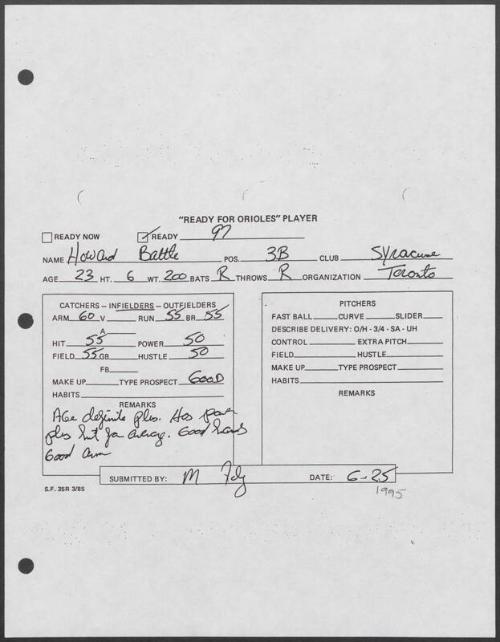 "READY FOR ORIOLES" PLAYER
READY NOW READY 97
NAME Howard Battle POS. 3B CLUB Syracuse
AGE 23 HT. 6 WT. 200 BATS R THROWS R ORGANIZATION Toronto
CATCHERS – INFIELDERS – OUTFIELDERS
ARM 60 V RUN 55 BR 55
A
HIT 55 POWER 50
FIELD 55 GB HUSTLE 50
FB
MAKE UP TYPE PROSPECT GOOD
HABITS
REMARKS
Age definite plus. Has power
plus hit for average. Good hands
Good arm
PITCHERS
FAST BALL CURVE SLIDER
DESCRIBE DELIVERY: O/H - 3/4 - SA - UH
CONTROL EXTRA PITCH
FIELD HUSTLE
MAKE UP TYPE PROSPECT
HABITS
REMARKS
SUBMITTED BY: M DATE: 6-25
1995
S.F. 35R 3/85